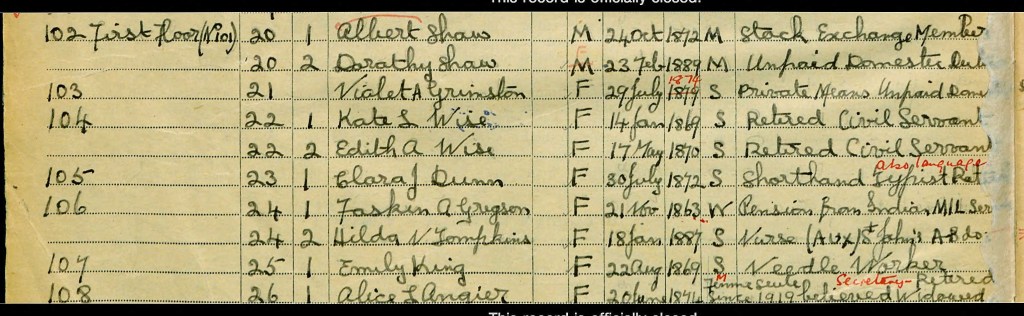 This record is officially closed.
102 First Floor (No101) 20 1 Albert Shaw M 24 Oct 1872 M Stock Exchange Member
20 2 Dorothy Shaw F M 23 Feb 1889 M Unpaid Domestic Dut
1874
103 21 Violet A Grimston F 29 July 1879 S Private Means Unpaid Dom
104 22 1 Kate L Wise F 14 Jan 1869 S Retired Civil Servant
22 2 Edith A Wise F 17 May 1870 S Retired Civil Servant
also language
105 23 1 Clara J Dunn F 30 July 1872 S Shorthand Typist Ret
106 24 1 Faskin A Gregson F 21 Nov 1863 W Pension from Indian MIL Ser
24 2 Hilda N Tompkins F 18 Jan 1887 S Nurse (Aux) St John's AB
107 25 1 Emily King F 22 Aug 1869 S Needle Worker
M Femme Seule Secretary Retired
108 26 1 Alice L Angier F 20 June 1874 Since 1919 believed Widowed
This record is officially closed.